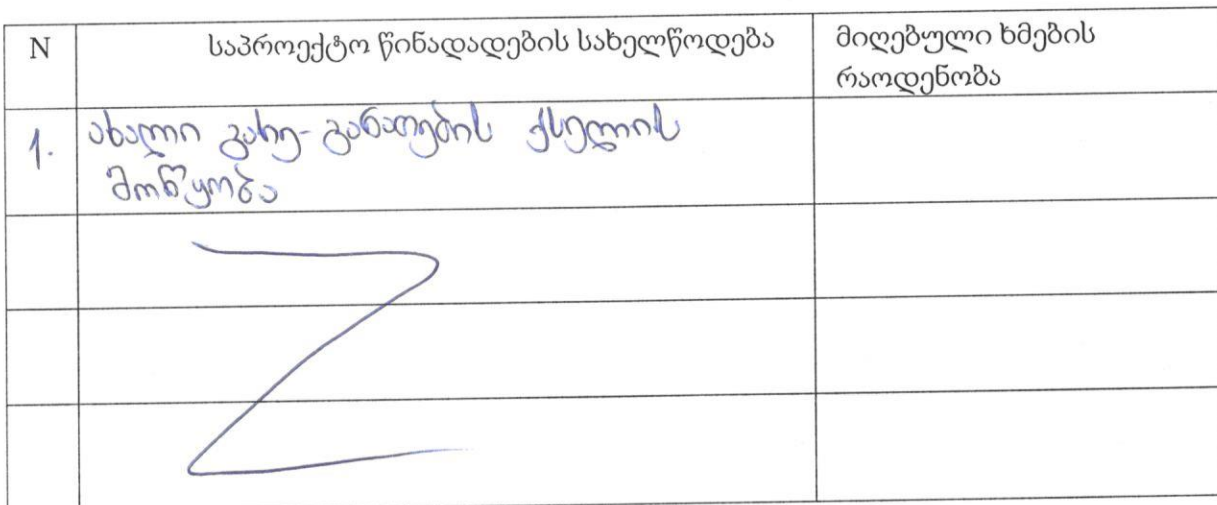 N
საპროექტო წინადადების სახელწოდება
მიღებული ხმების
რაოდენობა
1.
ახალი გარე-განათების ქსელის
მოწყობა